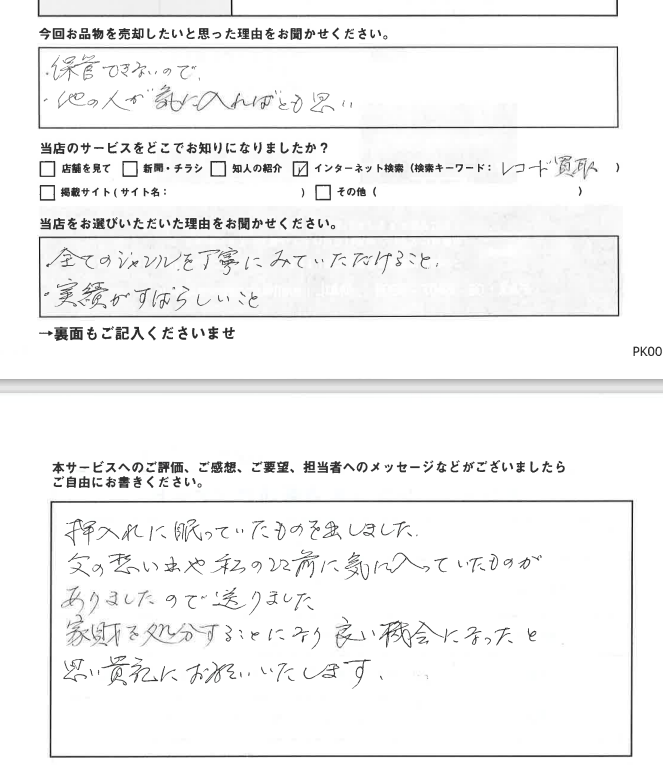 今回お品物を売却したいと思った理由をお聞かせください。
・保管できないので、
・他の人が気に入ればとも思い
当店のサービスをどこでお知りになりましたか？
□ 店舗を見て □ 新聞・チラシ □ 知人の紹介 ☑ インターネット検索（検索キーワード： レコード買取 ）
□ 掲載サイト（サイト名： ） □ その他（ ）
当店をお選びいただいた理由をお聞かせください。
・全てのジャンルを丁寧にみていただけること、
・実績がすばらしいこと
→裏面もご記入くださいませ
PK00
本サービスへのご評価、ご感想、ご要望、担当者へのメッセージなどがございましたら
ご自由にお書きください。
押入れに眠っていたものを出しました。
父の思い出や私の 前に気に入っていたものが
ありましたので送りました
家財を処分することになり良い機会になったと
思い貴社にお願いいたします。